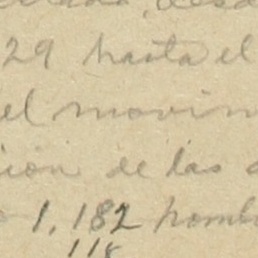 desd
29 hasta el
el movim
ion de las
1,182 homb
118